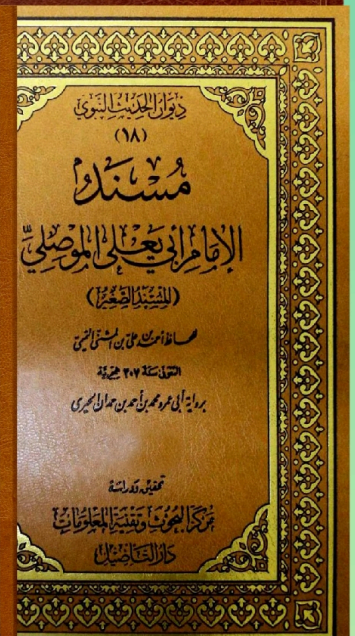 ديوان الحديث النبوي
(١٨)
مسند
الإمام أبي يعلى الموصلي
(المسند الصغير)
للحافظ أحمد بن علي بن المثنى التميمي
المتوفى سنة ٣٠٧ هجرية
برواية أبي عمرو محمد بن أحمد بن حمدان الحيري
تحقيق ودراسة
مركز البحوث وتقنية المعلومات
دار التأصيل